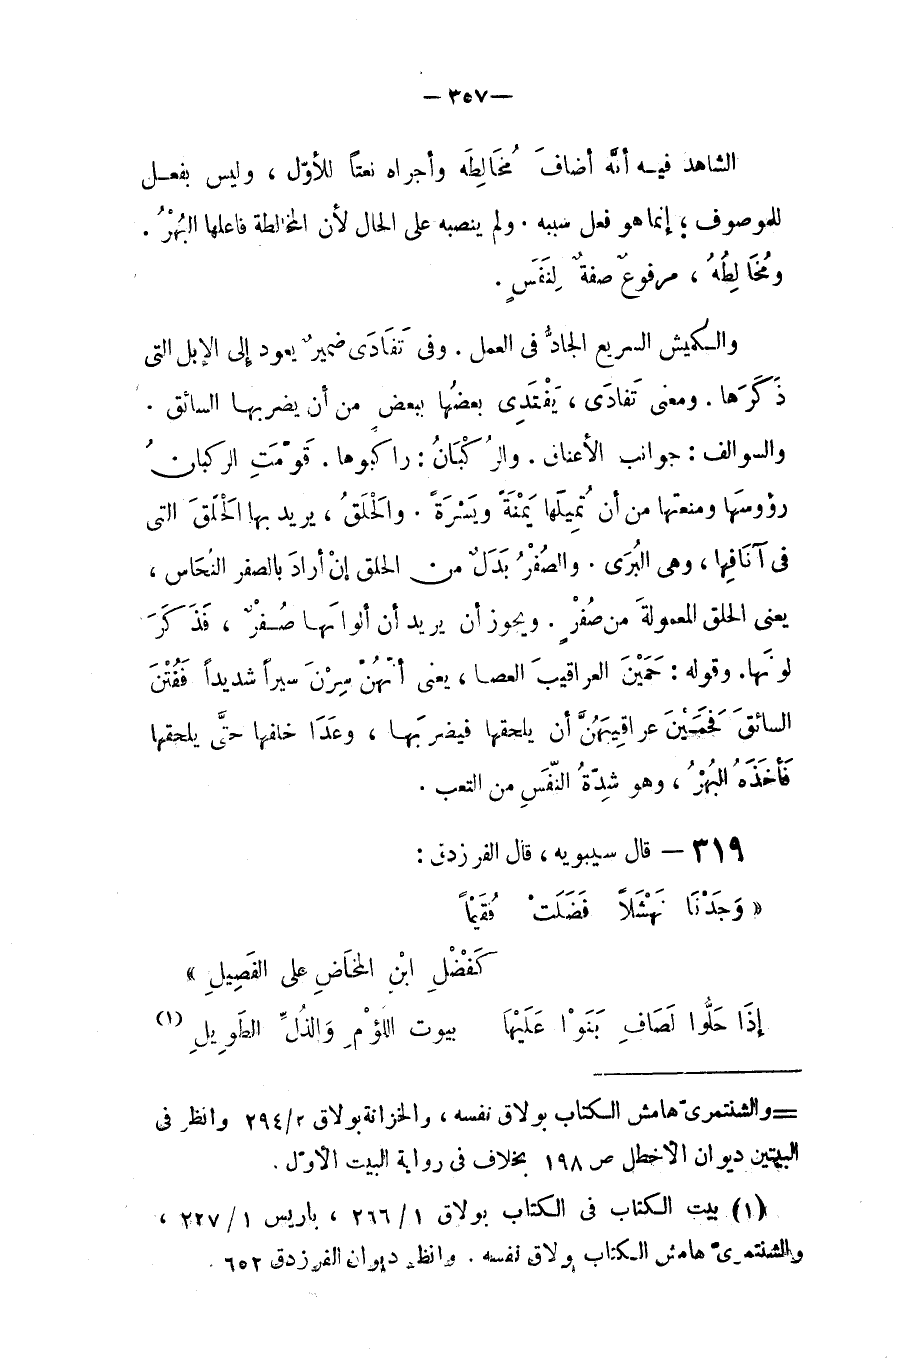 — ٣٥٧ —
الشاهد فيه أنَّه أضافَ مُخَالِطَه وأجراه نعتاً للأوّل ، وليس بفعل
للموصوف ؛ إنما هو فعل سببه . ولم ينصبه على الحال لأن المخالطة فاعلها البُهْرُ .
ومُخَالِطُهُ ، مرفوعٌ صفةٌ لِنَفَسٍ .
والكميش السريع الجادُّ فى العمل . وفى تَفَادَى ضميرٌ يعود إلى الإبل التى
ذَكَرَها . ومعنى تَفادَى ، يَفْتَدِى بعضُها ببعضٍ من أن يضربها السائق .
والسوالف : جوانب الأعناق . والرُكْبَانُ : راكبوها . قَوَّمَتِ الركبانُ
رؤوسَها ومنعتها من أن تُمِيلَها يَمْنَةً ويَسْرَةً . والَحْلَقُ ، يريد بها الَحْلَقَ التى
فى آنَافِها ، وهى البُرَى . والصُفْرُ بَدَلٌ من الحلق إنْ أرادَ بالصفر النُحَاس ،
يعنى الحلق المعمولةَ من صُفْرٍ . ويجوز أن يريد أن ألوانَها صُفْرٌ ، فَذَكَرَ
لونَها. وقوله : حَمَيْنَ العراقيبَ العصا ، يعنى أنّهُنّ سِرْنَ سيراً شديداً فَفُتْنَ
السائقَ فَحَمَيْنَ عراقِيبَهُنَّ أن يلحقها فيضربَها ، وعَدَا خلفها حتَّى يلحقها
فَأخَذَهُ البُهْرُ ، وهو شدّةُ النَّفَسِ من التعب .
٣١٩ — قال سيبويه ، قال الفرزدق :
« وَجَدْنَا نَهْشَلاً فَضَلَتْ فُقَيْماً
كَفَضْلِ ابْنِ المَخَاضِ على الفَصِيلِ »
إِذَا حَلُّوا لَصَافِ بَنَوْا عَلَيْهَا بيوت اللؤْمِ وَالذُلِّ الطَويلِ (١)
= والشنتمرىّ هامش الكتاب بولاق نفسه ، والخزانة بولاق ٢/٢٩٤ وانظر فى
البيتين ديوان الأخطل ص ١٩٨ بخلاف فى رواية البيت الأوّل .
(١) بيت الكتاب فى الكتاب بولاق ١/٢٦٦ ، باريس ١/٢٢٧ ،
والشنتمرىّ هامش الكتاب بولاق نفسه . وانظر ديوان الفرزدق ٦٥٢ .